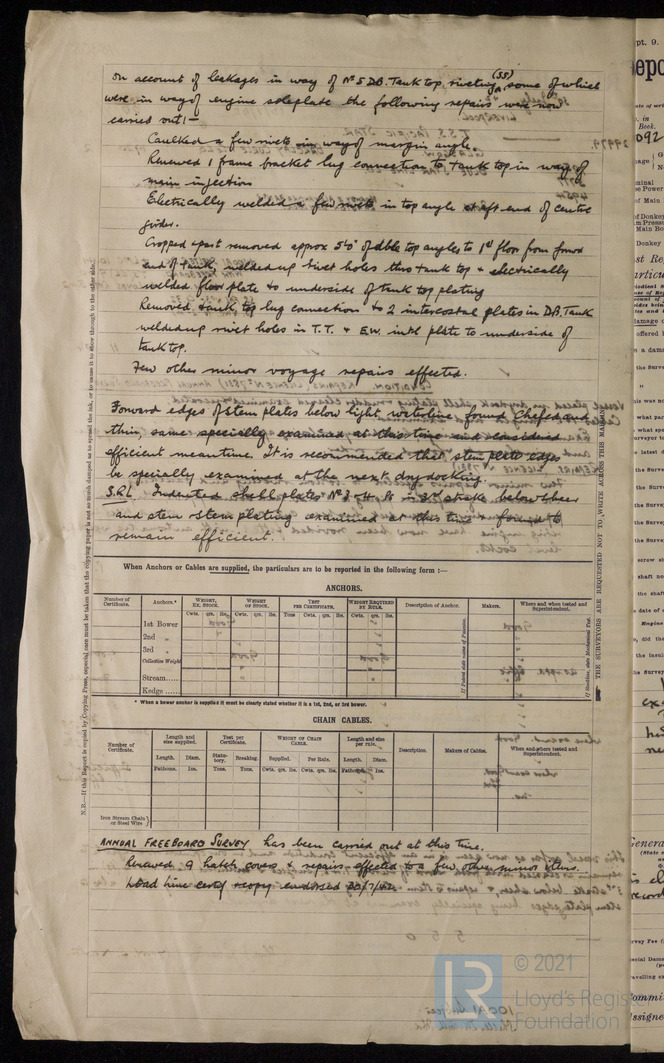 On account of leakages in way of No 5 D.B. Tank top riveting (SS) some of which
were in way of engine soleplate the following repairs were now
carried out:-
Caulked a few rivets in way of margin angle.
Renewed 1 frame bracket lug connection to tank top in way of
main injection
Electrically welded a few rivets in top angle at aft end of centre
girder.
Cropped & part removed approx 5'0" of dble top angles to 1st floor from forwd
end of tank, welded up rivet holes thro tank top & electrically
welded floor plate to underside of tank top plating
Removed tank top lug connection to 2 intercostal plates in D.B. Tank
welded up rivet holes in T.T. & E.W. intl plate to underside of
tank top.
Few other minor voyage repairs effected.
Forward edges of stem plates below light waterline found chafed and
thin, same specially examined at this time and considered
efficient meantime. It is recommended that stem plate edges
be specially examined at the next drydocking.
S.R.L. Indented shell plates No 3 & 4 in 3rd strake below sheer
and stem plating examined at this time & found to
remain efficient.
When Anchors or Cables are supplied, the particulars are to be reported in the following form :—
ANCHORS.
Number of Certificate. Anchors.* WEIGHT, EX. STOCK. WEIGHT OF STOCK. TEST PER CERTIFICATE. WEIGHT REQUIRED BY RULE. Description of Anchor. Makers. Where and when tested and Superintendent.
Cwts. qrs. lbs. Cwts. qrs. lbs. Tons Cwts. qrs. lbs. Cwts. qrs. lbs.
1st Bower
2nd "
3rd "
Collective Weight
Stream......
Kedge......
* When a bower anchor is supplied it must be clearly stated whether it is a 1st, 2nd, or 3rd bower.
CHAIN CABLES.
Number of Certificate. Length and size supplied. Test per Certificate. WEIGHT OF CHAIN CABLE. Length and size per rule. Description. Makers of Cables. When and where tested and Superintendent.
Length. Diam. Statutory. Breaking. Supplied. Per Rule. Length. Diam.
Fathoms. Ins. Tons. Tons. Cwts. qrs. lbs. Cwts. qrs. lbs. Fathoms. Ins.
Iron Stream Chain or Steel Wire
ANNUAL FREEBOARD SURVEY has been carried out at this time.
Renewed 9 hatch covers & repairs effected to a few other minor items.
Load line certf & copy endorsed
N.B.—If this Report is copied by Copying Press, especial care must be taken that the copying paper is not so much damped as to spread the ink, or to cause it to show through to the other side.
THE SURVEYORS ARE REQUESTED NOT TO WRITE ACROSS THIS MARGIN.
© 2021
LR
Lloyd's Register
Foundation